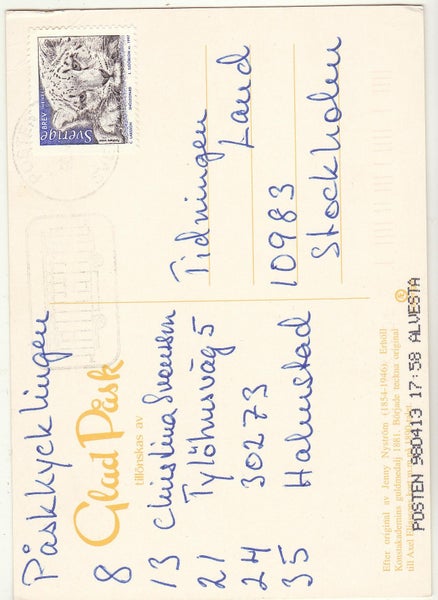 Påskkycklingen
8
Glad Påsk
tillönskas av
13 Christina Svensson
21 Tylöhusväg 5
24 30273
35 Halmstad
Sverige
BREV
1997
SNÖLEOPARD
Tidningen
Land
10983
Stockholm
POSTEN 980413 17:58 ALVESTA
Efter original av Jenny Nyström (1854-1946). Erhöll
Konstakademins guldmedalj 1881. Började teckna original
till Axel